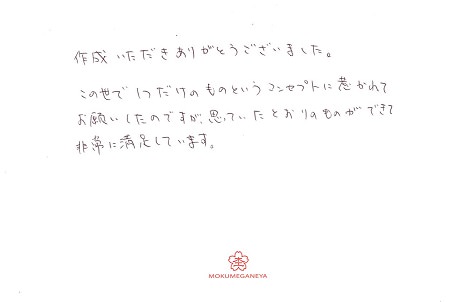 作成いただきありがとうございました。
この世で1つだけのものというコンセプトに惹かれて
お願いしたのですが、思っていたとおりのものができて
非常に満足しています。
MOKUMEGANEYA